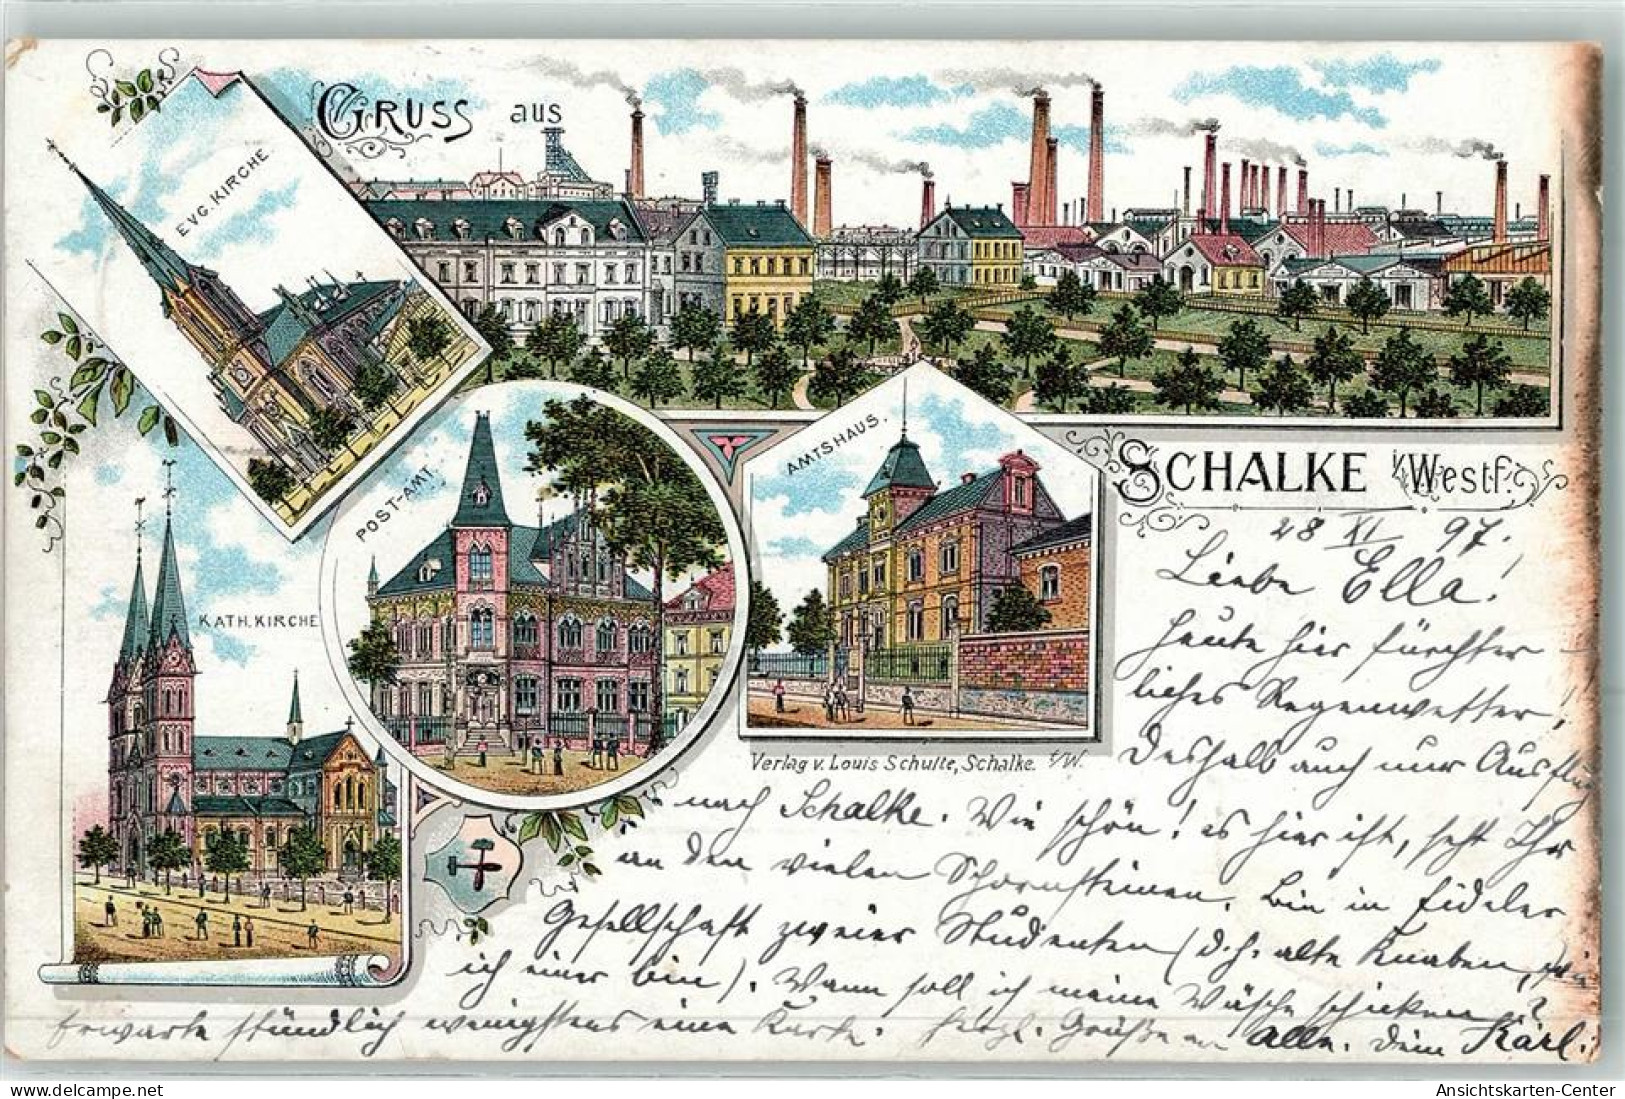 GRUSS aus
EVG. KIRCHE
POST-AMT.
AMTSHAUS.
KATH. KIRCHE
SCHALKE i/Westf.
Verlag v. Louis Schulte, Schalke. i/W.
28 XI 97.
Liebe Ella!
Heute hier fürchter-
liches Regenwetter,
deshalb auch nur Ausflug
nach Schalke. Wie schön! es hier ist, seht Ihr
an den vielen Schornsteinen. Bin in fideler
Gesellschaft zweier Studenten (d. h. alte Knaben, wie
ich einer bin). Wann soll ich meine Wäsche schicken?
Erwarte stündlich wenigstens eine Karte. Herzl. Grüße an alle. Dein Karl.
Ansichtskarten-Center